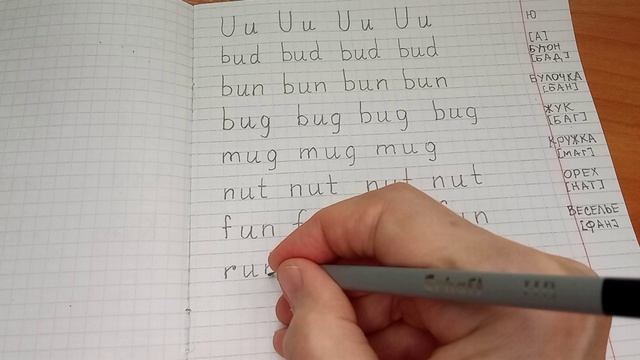 Uu Uu Uu Uu Ю
[А]
bud bud bud bud БУТОН
[БАД]
bun bun bun bun БУЛОЧКА
[БАН]
bug bug bug bug ЖУК
[БАГ]
mug mug mug КРУЖКА
[МАГ]
nut nut nut nut ОРЕХ
[НАТ]
fun ВЕСЕЛЬЕ
[ФАН]